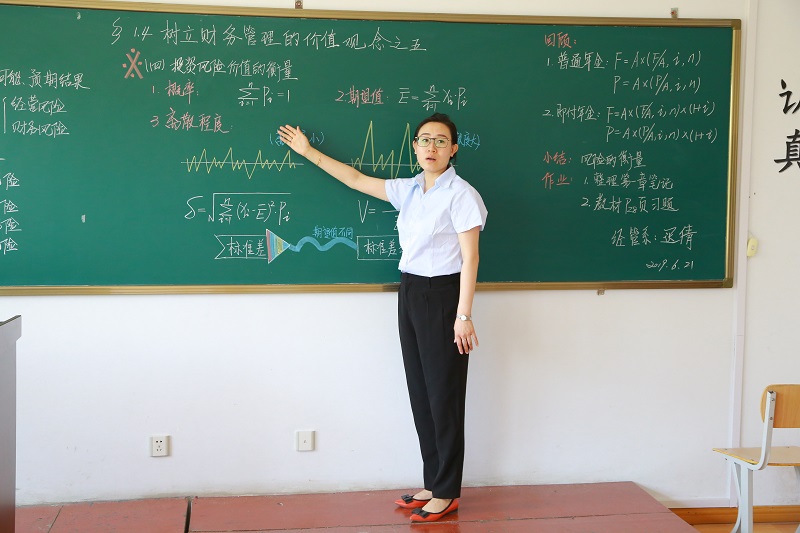 § 1.4 树立财务管理的价值观念之五
预期结果
经营风险
财务风险
险
险
险
险
(四) 投资风险价值的衡量
1. 概率: Σ Pi = 1
2. 期望值: E̅ = Σ Xi·Pi
3. 离散程度:
小)
δ = √Σ(Xi-E̅)²·Pi
V =
标准差
期望值不同
标准差
回顾:
1. 普通年金: F = A×(F/A, i, n)
P = A×(P/A, i, n)
2. 即付年金: F = A×(F/A, i, n)×(1+i)
P = A×(P/A, i, n)×(1+i)
小结: 风险的衡量
作业: 1. 整理第一章笔记
2. 教材 页习题
经管系: 迟倩
2019.6.21
真